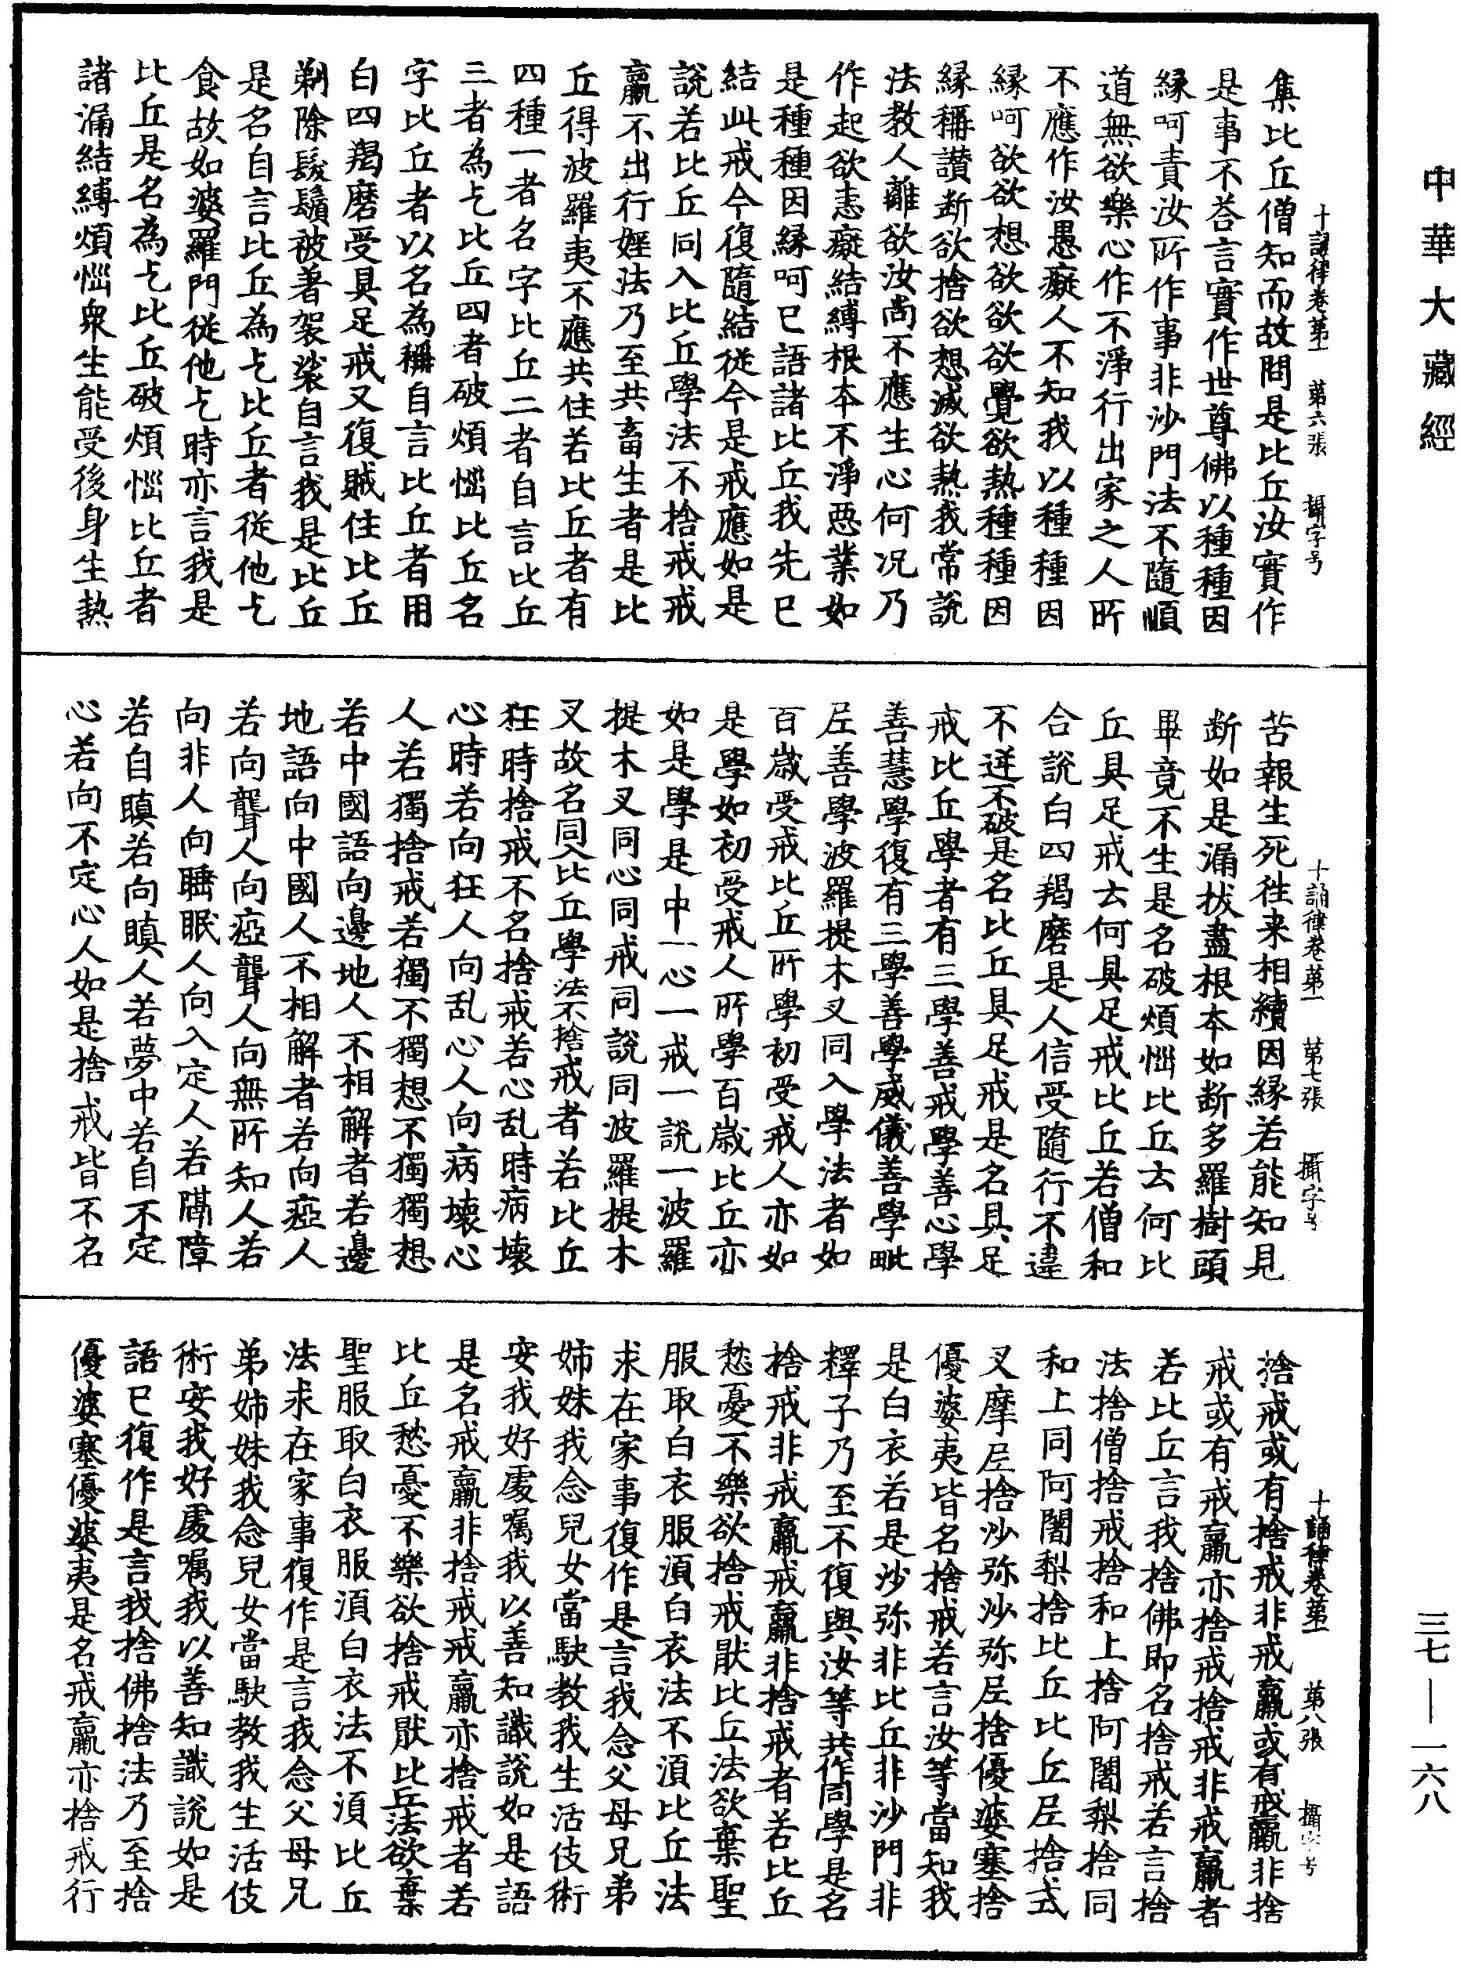 中華大藏經
十誦律卷第一　第六張　攝字号
集比丘僧知而故問是比丘汝實作
是事不荅言實作世尊佛以種種因
緣呵責汝所作事非沙門法不隨順
道無欲樂心作不淨行出家之人所
不應作汝愚癡人不知我以種種因
緣呵欲欲想欲欲欲覺欲熱種種因
緣稱讚斷欲捨欲想滅欲熱我常說
法教人離欲汝尚不應生心何況乃
作起欲恚癡結縛根本不淨惡業如
是種種因緣呵已語諸比丘我先已
結此戒今復隨結從今是戒應如是
說若比丘同入比丘學法不捨戒戒
羸不出行婬法乃至共畜生者是比
丘得波羅夷不應共住若比丘者有
四種一者名字比丘二者自言比丘
三者為乞比丘四者破煩惱比丘名
字比丘者以名為稱自言比丘者用
白四羯磨受具足戒又復賊住比丘
剃除鬚髮被著袈裟自言我是比丘
是名自言比丘為乞比丘者從他乞
食故如婆羅門從他乞時亦言我是
比丘是名為乞比丘破煩惱比丘者
諸漏結縛煩惱眾生能受後身生熱
十誦律卷第一　第七張　攝字号
苦報生死往来相續因緣若能知見
断如是漏拔盡根本如断多羅樹頭
畢竟不生是名破煩惱比丘云何比
丘具足戒云何具足戒比丘若僧和
合說白四羯磨是人信受隨行不違
不逆不破是名比丘具足戒是名具足
戒比丘學者有三學善戒學善心學
善慧學復有三學善學威儀善學毗
尼善學波羅提木叉同入學法者如
百歲受戒比丘所學初受戒人亦如
是學如初受戒人所學百歲比丘亦
如是學是中一心一戒一說一波羅
提木叉同心同戒同說同波羅提木
叉故名同入比丘學法不捨戒者若比丘
狂時捨戒不名捨戒若心乱時病壞
心時若向狂人向乱心人向病壞心
人若獨捨戒若獨不獨想不獨獨想
若中國語向邊地人不相解者若邊
地語向中國人不相解者若向瘂人
若向聾人向瘂聾人向無所知人若
向非人向睡眠人向入定人若隔障
若自瞋若向瞋人若夢中若自不定
心若向不定心人如是捨戒皆不名
十誦律卷第一　第八張　攝字号
捨戒或有捨戒非戒羸或有戒羸非捨
戒或有戒羸亦捨戒捨戒非戒羸者
若比丘言我捨佛即名捨戒若言捨
法捨僧捨戒捨和上捨阿闍梨捨同
和上同阿闍梨捨比丘比丘尼捨式
叉摩尼捨沙弥沙弥尼捨優婆塞捨
優婆夷皆名捨戒若言汝等當知我
是白衣若是沙弥非比丘非沙門非
釋子乃至不復與汝等共作同學是名
捨戒非戒羸戒羸非捨戒者若比丘
愁憂不樂欲捨戒厭比丘法欲棄聖
服取白衣服湏白衣法不湏比丘法
求在家事復作是言我念父母兄弟
姉妹我念兒女當駃教我生活伎術
安我好處囑我以善知識說如是語
是名戒羸非捨戒戒羸亦捨戒者若
比丘愁憂不樂欲捨戒厭比丘法欲棄
聖服取白衣服湏白衣法不湏比丘
法求在家事復作是言我念父母兄
弟姉妹我念兒女當駃教我生活伎
術安我好處囑我以善知識說如是
語已復作是言我捨佛捨法乃至捨
優婆塞優婆夷是名戒羸亦捨戒行
三七—一六八